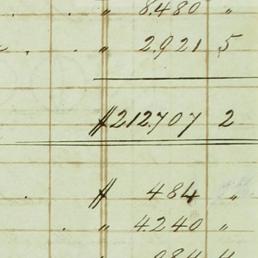 " 8.480 "
" 2.921 5
# 212.707 2
# 484 "
" 4240 "